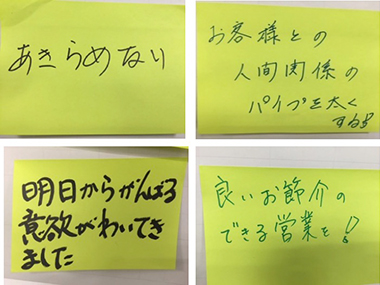 あきらめない
お客様との
人間関係の
パイプを太く
する!!
明日からがんばる
意欲がわいてき
ました
良いお節介の
できる営業を!